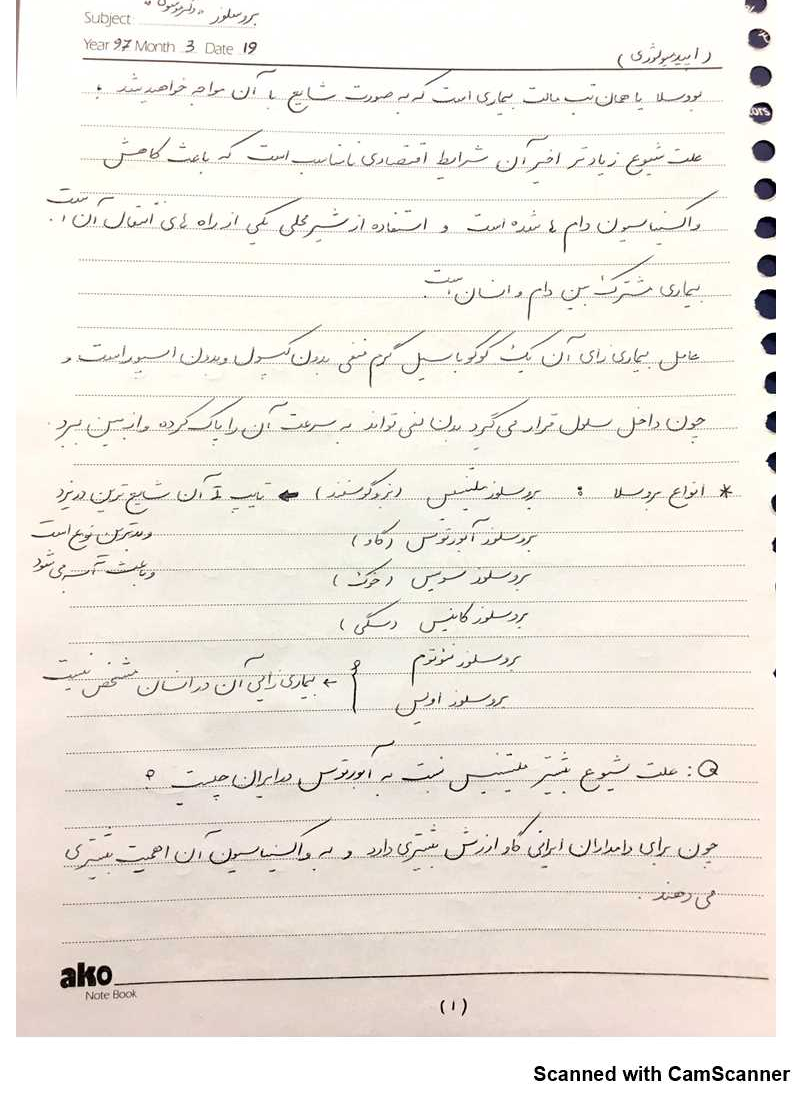 Subject بروسلوز
Year 97 Month 3 Date 19
(اپیدمیولوژی)
بروسلا یا همان تب مالت بیماری است که به صورت شایع با آن مواجه خواهید شد.
علت شیوع زیادتر اخیر آن شرایط اقتصادی نامناسب است که باعث کاهش
واکسیناسیون دام ها شده است و استفاده از شیر محلی یکی از راه های انتقال آن است.
بیماری مشترک بین دام و انسان است.
عامل بیماری زای آن یک کوکوباسیل گرم منفی بدون کپسول و بدون اسپور است و
چون داخل سلول قرار می گیرد بدن نمی تواند به سرعت آن را پاک کرده و از بین ببرد.
* انواع بروسلا : بروسلوز ملتنسیس (بز و گوسفند) ← تایپ 1 آن شایع ترین در یزد
بروسلوز آبورتوس (گاو) و بدترین نوع است
بروسلوز سویس (خوک) و باعث آبسه می شود
بروسلوز کانیس (سگی)
بروسلوز نئوتوم
بروسلوز اویس } ← بیماری زایی آن در انسان مشخص نیست
Q: علت شیوع بیشتر ملیتنسیس نسبت به آبورتوس در ایران چیست ؟
چون برای دامداران ایرانی گاو ارزش بیشتری دارد و به واکسیناسیون آن اهمیت بیشتری
می دهند.
ako
Note Book
(۱)
ors
Scanned with CamScanner